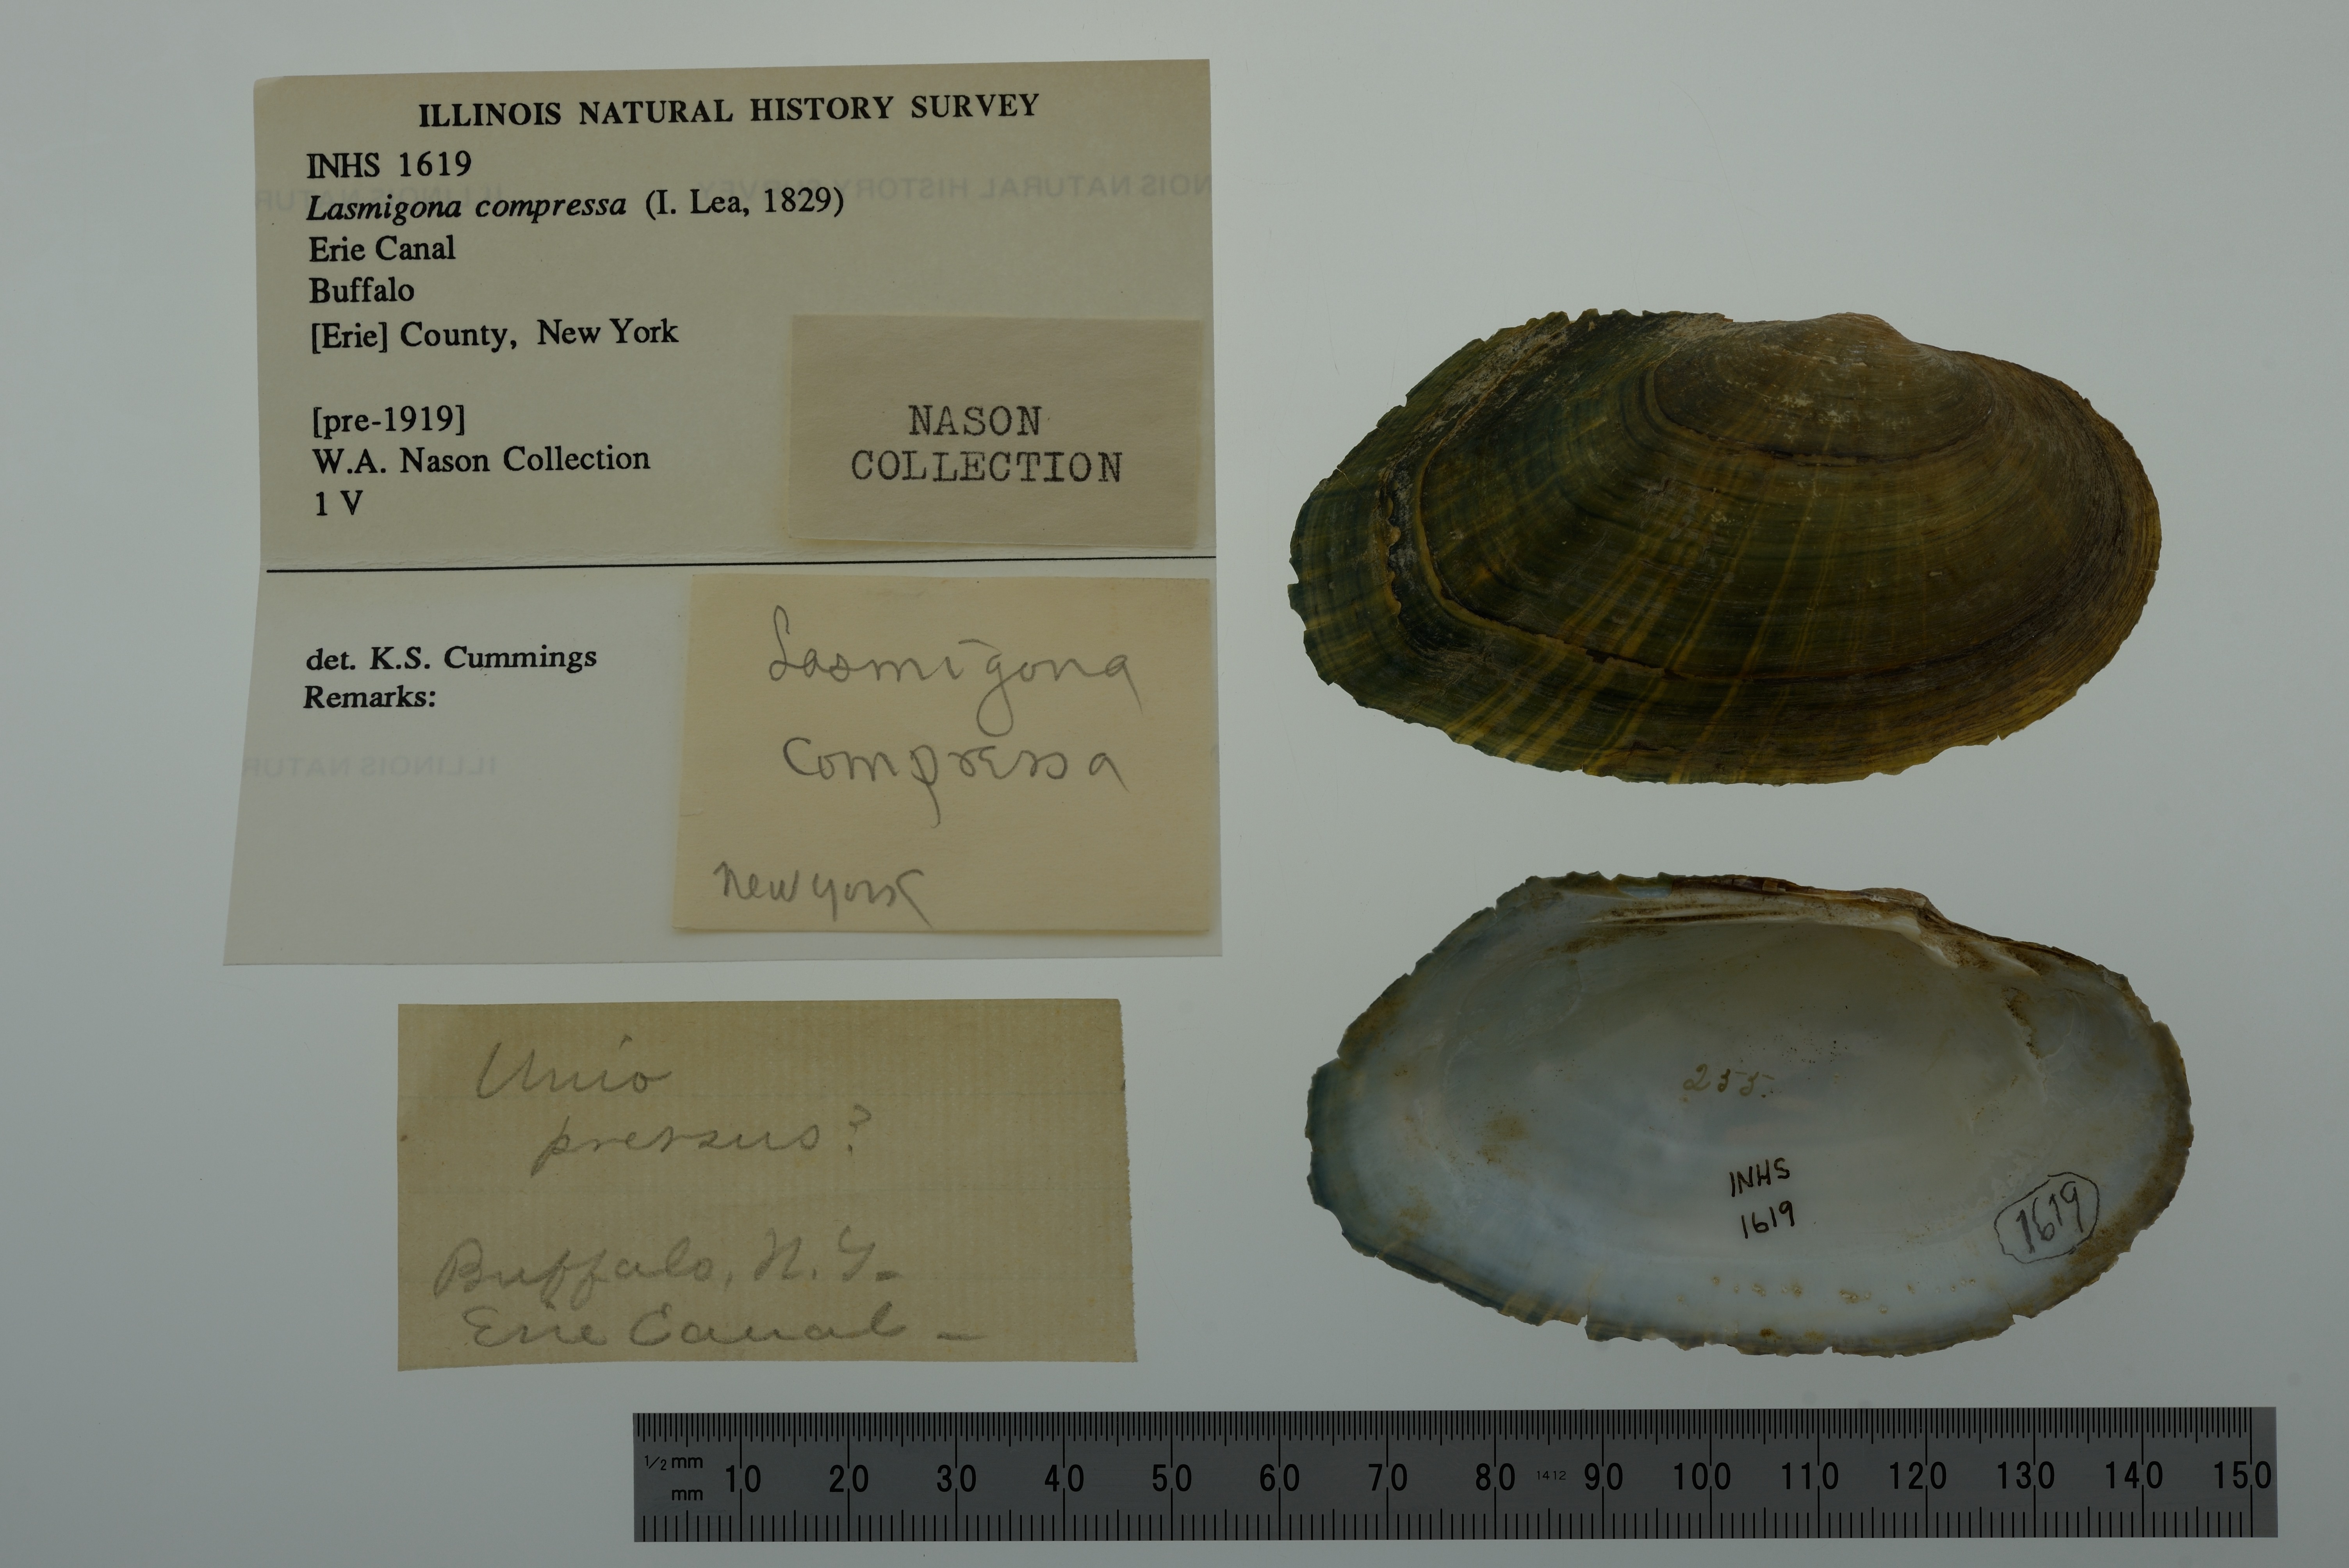 ILLINOIS NATURAL HISTORY SURVEY
INHS 1619
Lasmigona compressa (I. Lea, 1829)
Erie Canal
Buffalo
[Erie] County, New York
[pre-1919]
W.A. Nason Collection
1 V
NASON
COLLECTION
det. K.S. Cummings
Remarks:
Lasmigona
compressa
New York
Unio
pressus?
Buffalo, N.Y.
Erie Canal -
255.
INHS
1619
1619
1/2 mm
mm
10 20 30 40 50 60 70 80 1412 90 100 110 120 130 140 150